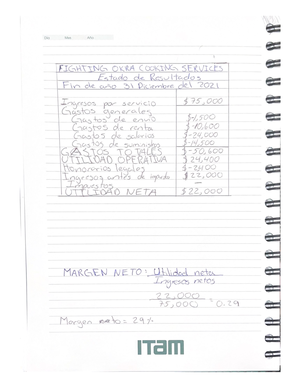 FIGHTING OKRA COOKING SERVICES
Estado de Resultados
Fin de año 31 Diciembre del 2021
Ingresos por servicio $75,000
Gastos generales
Gastos de envío
Gastos de renta $-10,600
Gastos de salarios $-24,000
Gastos de suministros $-14,500
GASTOS TOTALES $-50,600
UTILIDAD OPERATIVA $24,400
Honorarios legales $-2,400
Ingresos antes de $22,000
Impuestos —
UTILIDAD NETA $22,000
MARGEN NETO: Utilidad neta
Ingresos netos
22,000
75,000 0.29
Margen neto = 29%
ITAM